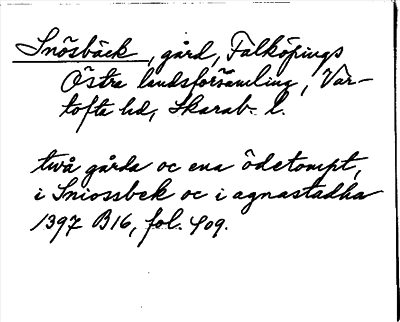 Snösbäck, gård, Falköpings
Östra landsförsamling, Var-
tofta hd, Skarab. l.
två gårda oc ena ödetompt,
i Sniossbek oc i agnastadha
1397 B16, fol. 409.